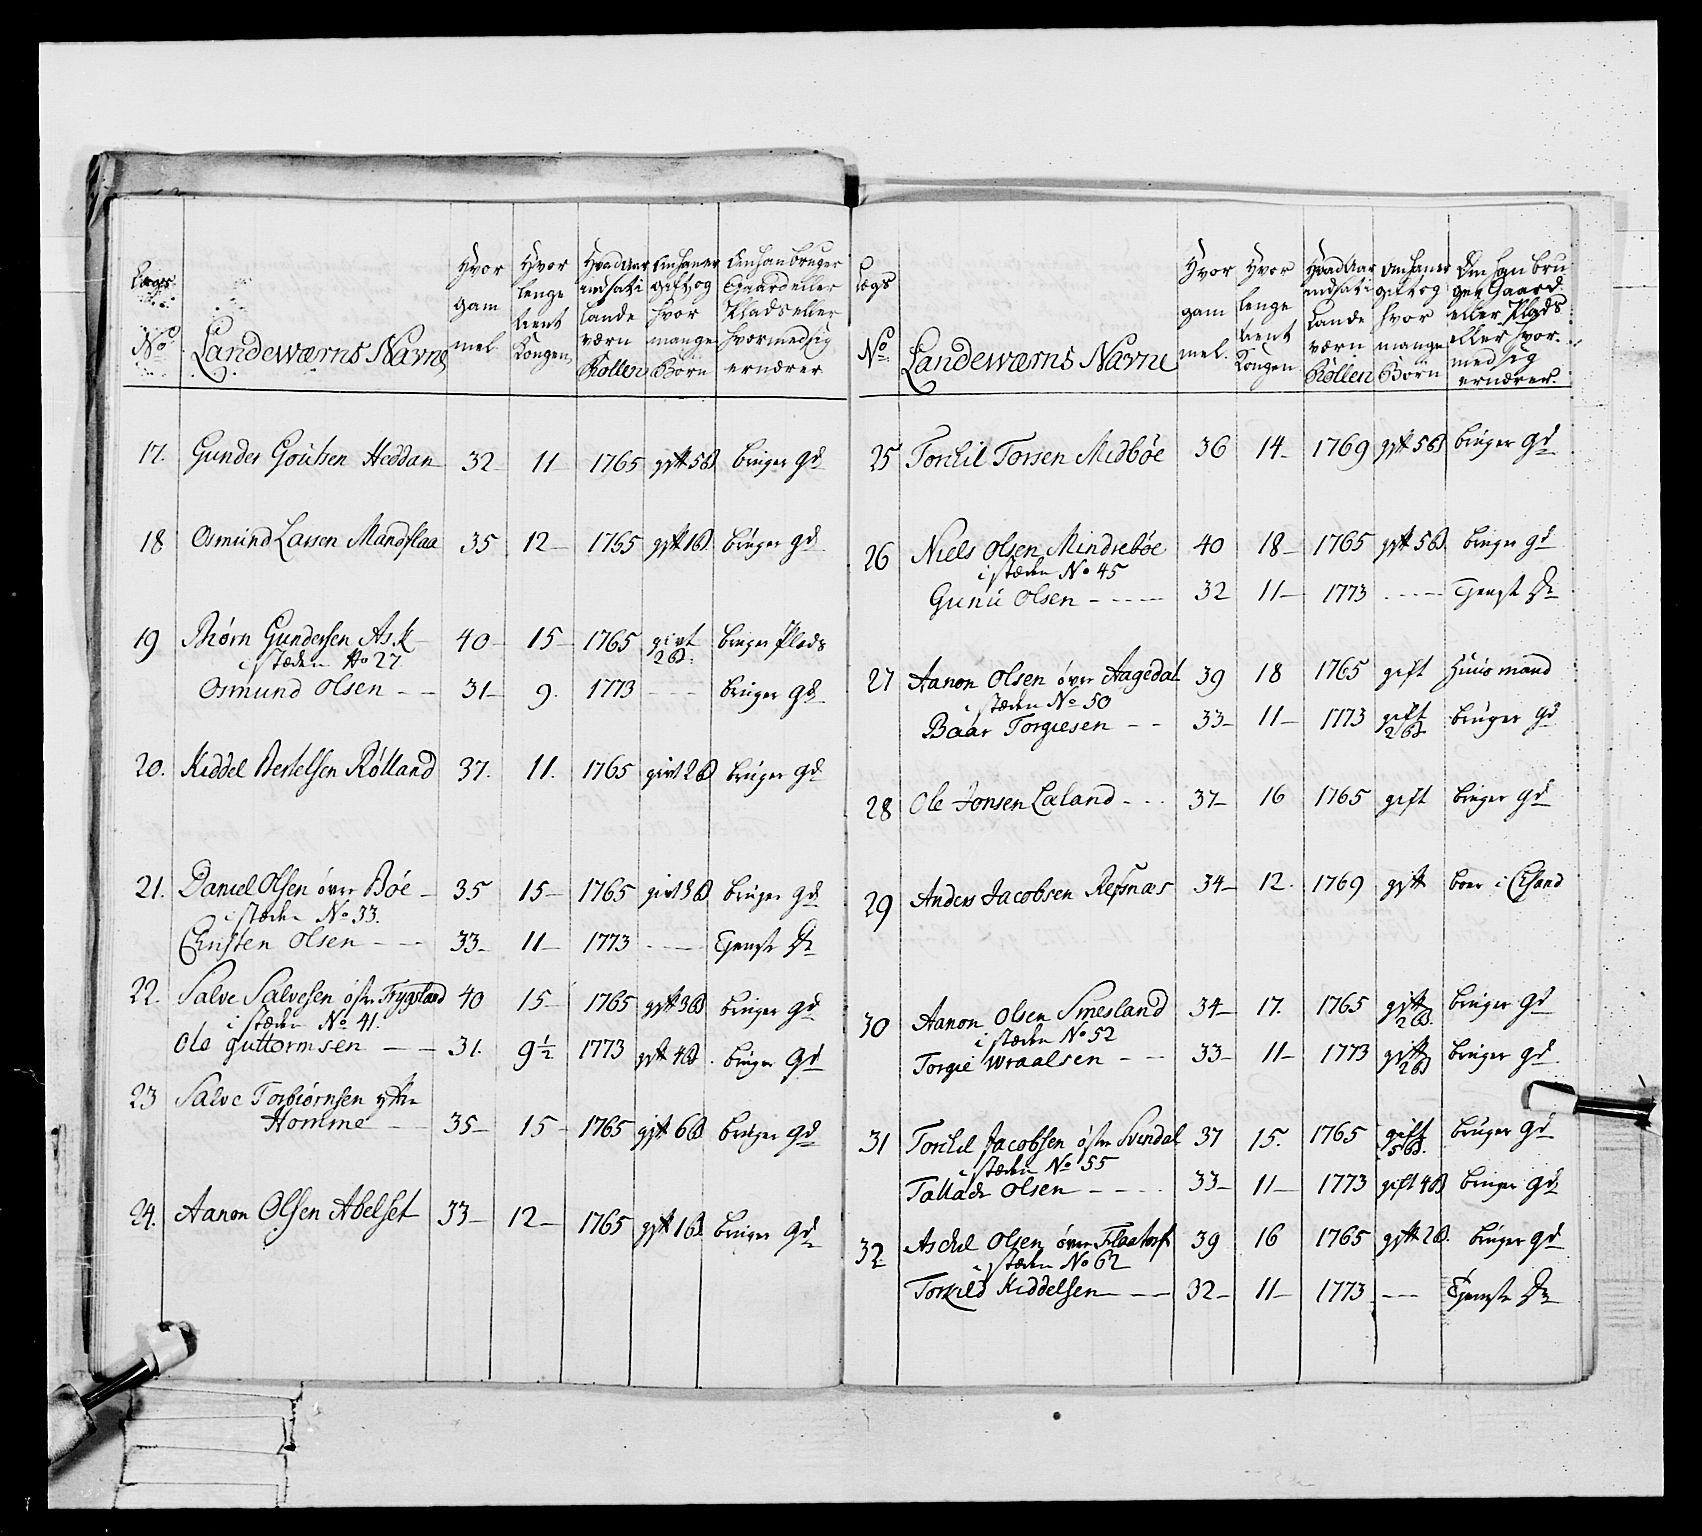 Lægs No
Landeværns Navne
Hvor gam mel.
Hvor lenge tient Kongen
Hvad Aar indsat i Lande værn Rollen
Om han er gift og hvor mange Børn
Om han bruger Gaard eller Plads eller hvormed sig ernærer
17. Gunder Heddan 32 11 1765 gift 5 B bruger Gd
18 Osmund Larsen Mandflaa 35 12 1765 gift 1 B bruger gd
19 Biørn Gundersen Ask 40 15 1765 givt 2 B. bruger Plads
i stæden No 27
Osmund Olsen 31 9. 1773 bruger Gd
20. Kiddel Bertelsen Rølland 37. 11. 1765 givt 2 B bruger Gd
21. Daniel Olsen øvre Bøe 35 15 1765 givt 3 B bruger Gd
i stæden No 33.
Christen Olsen 33 11 1773 Tienste Dr
22. Salve Salvesen østre Trygsland 40 15 1765 gift 3 B bruger Gd
i stæden No 41.
Ole guttormsen 31. 9½ 1773 gift 4 B. bruger Gd
23 Salve Torbiørnsen ytre
Homme 35 15 1765 gift 6 B bruger Gd
24. Aanon Olsen Abelset 33 12 1765 gift 1 B bruger Gd
Lægs No
Landeværns Navne
Hvor gam mel.
Hvor lenge tient Kongen
Hvad Aar indsat i Lande værn Rollen
Om han er gift og hvor mange Børn
Om han bru ger Gaard eller Plads eller hvor med sig ernærer.
25 Torkil Torsen Midbøe 36 14 1769 gift 5 B bruger Gd
26 Niels Olsen Mindrebøe 40 18 1765 gift 5 B. bruger gd
i stæden No 45
Gunu Olsen 32 11 1773 Tienst Dr
27 Aanon Olsen øvre Aagedal 39 18 1765 gift Huusmand
i stæden No 50
Baar Torgiesen 33 11 1773 gift 2 B bruger Gd
28 Ole Jonsen Laland 37 16 1765 gift bruger Gd
29 Anders Jacobsen Refsnæs 34 12. 1769 gift boer i
30 Aanon Olsen Smesland 34 17. 1765 gift 2 B. bruger Gd
i stæden No 52
Torgie Wraalsen 33 11 1773 gift 2 B bruger gd
31 Torkel Jacobsen østre Svindal 37 15. 1765 gift 5 B. bruger Gd
i stæden No 55
Tallack Olsen 33 11 1773 gift 4 B bruger Gd
32 Askel Olsen øvre 39 16 1765 gift 2 B. bruger gd
i stæden No 62
Torkild Kiddelsen 32 11 1773 Tienste Dr